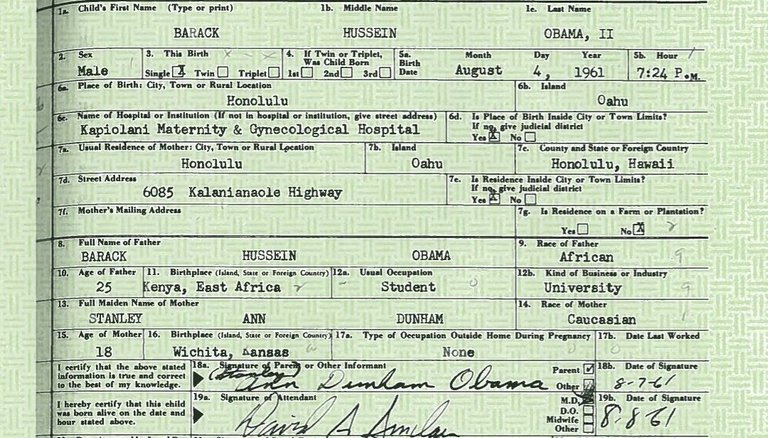 1a. Child's First Name (Type or print) 1b. Middle Name 1c. Last Name
BARACK HUSSEIN OBAMA, II
2. Sex 3. This Birth 4. If Twin or Triplet, Was Child Born 5a. Birth Date Month Day Year 5b. Hour
Male Single X Twin Triplet 1st 2nd 3rd August 4, 1961 7:24 P.M.
6a. Place of Birth: City, Town or Rural Location 6b. Island
Honolulu Oahu
6c. Name of Hospital or Institution (If not in hospital or institution, give street address) 6d. Is Place of Birth Inside City or Town Limits? If no, give judicial district
Kapiolani Maternity & Gynecological Hospital Yes X No
7a. Usual Residence of Mother: City, Town or Rural Location 7b. Island 7c. County and State or Foreign Country
Honolulu Oahu Honolulu, Hawaii
7d. Street Address 7e. Is Residence Inside City or Town Limits? If no, give judicial district
6085 Kalanianaole Highway Yes X No
7f. Mother's Mailing Address 7g. Is Residence on a Farm or Plantation?
Yes No X
8. Full Name of Father 9. Race of Father
BARACK HUSSEIN OBAMA African
10. Age of Father 11. Birthplace (Island, State or Foreign Country) 12a. Usual Occupation 12b. Kind of Business or Industry
25 Kenya, East Africa Student University
13. Full Maiden Name of Mother 14. Race of Mother
STANLEY ANN DUNHAM Caucasian
15. Age of Mother 16. Birthplace (Island, State or Foreign Country) 17a. Type of Occupation Outside Home During Pregnancy 17b. Date Last Worked
18 Wichita, Kansas None
I certify that the above stated information is true and correct to the best of my knowledge. 18a. Signature of Parent or Other Informant Parent Other 18b. Date of Signature
(Stanley) Ann Dunham Obama 8-7-61
I hereby certify that this child was born alive on the date and hour stated above. 19a. Signature of Attendant M.D. D.O. Midwife Other 19b. Date of Signature
David A Sinclair 8-8-61